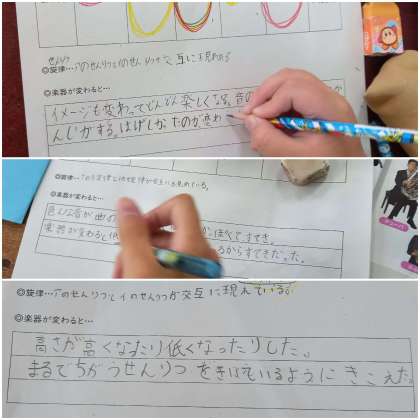 せんりつ
◎旋律…アのせんりつとイのせんりつが交互に現れる
◎楽器が変わると…
イメージも変わってどんどん楽しくなる。音の
んじがする。はげしかったのが変わ
◎旋律…
◎楽器が変わると…
色んな音が曲の 低くてすてき。
楽器が変わると低 るからすてきだった。
◎旋律…アのせんりつとイのせんりつが交互に現れている。
◎楽器が変わると…
高さが高くなったり低くなったりした。
まるでちがうせんりつをきいているようにきこえた。